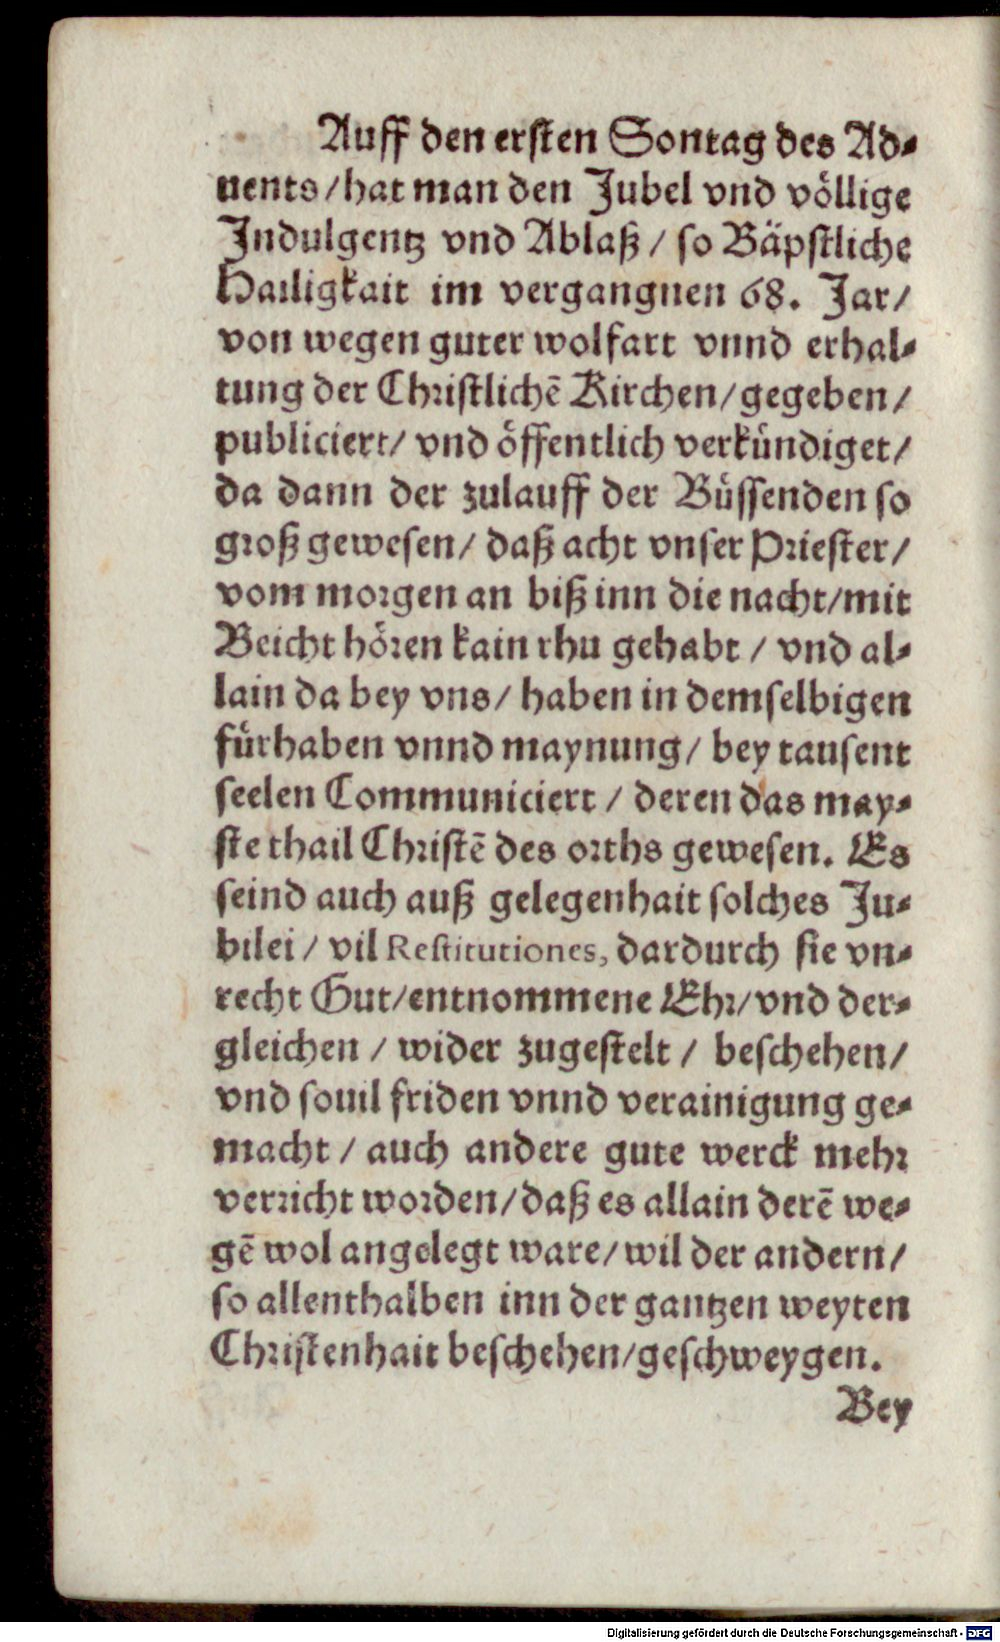 Auff den ersten Sontag des Ad-
uents/hat man den Jubel vnd völlige
Indulgentz vnd Ablaß / so Bäpstliche
Hailigkait im vergangnen 68. Jar/
von wegen guter wolfart vnnd erhal-
tung der Christlichē Kirchen/gegeben/
publiciert/ vnd öffentlich verkündiget/
da dann der zulauff der Büssenden so
groß gewesen/ daß acht vnser Priester/
vom morgen an biß inn die nacht/mit
Beicht hören kain rhu gehabt / vnd al-
lain da bey vns/ haben in demselbigen
fürhaben vnnd maynung/ bey tausent
seelen Communiciert / deren das may-
ste thail Christē des orths gewesen. Es
seind auch auß gelegenhait solches Ju-
bilei / vil Restitutiones, dardurch sie vn-
recht Gut/entnommene Ehr/vnd der-
gleichen / wider zugestelt / beschehen/
vnd souil friden vnnd verainigung ge-
macht / auch andere gute werck mehr
verricht worden/daß es allain derē we-
gē wol angelegt ware/wil der andern/
so allenthalben inn der gantzen weyten
Christenhait beschehen/geschweygen.
Bey
Digitalisierung gefördert durch die Deutsche Forschungsgemeinschaft - DFG